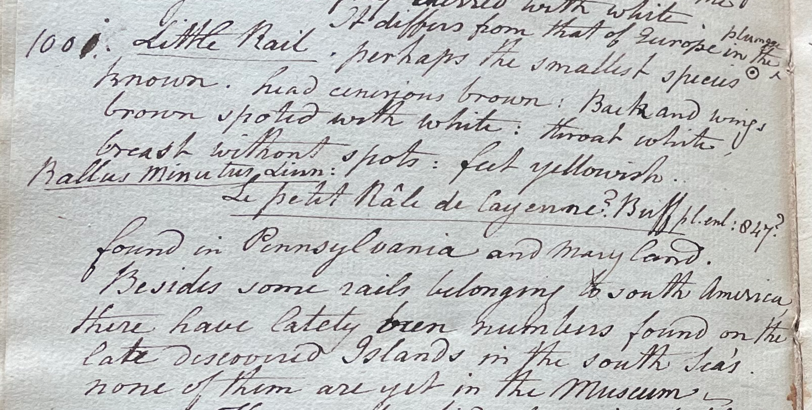 with white
It differs from that of Europe in the
plumage
1001. Little Rail. perhaps the smallest species
known. head cenirious brown: Back and wings
brown spoted with white: throat white,
breast without spots: feet yellowish.
Rallus Minutus Linn:
Le petit Râle de Cayenne? Buff pl. enl: 847?
found in Pennsylvania and Maryland.
Besides some rails belonging to south America
there have lately been numbers found on the
late discovered Islands in the south Sea's.
none of them are yet in the Museum